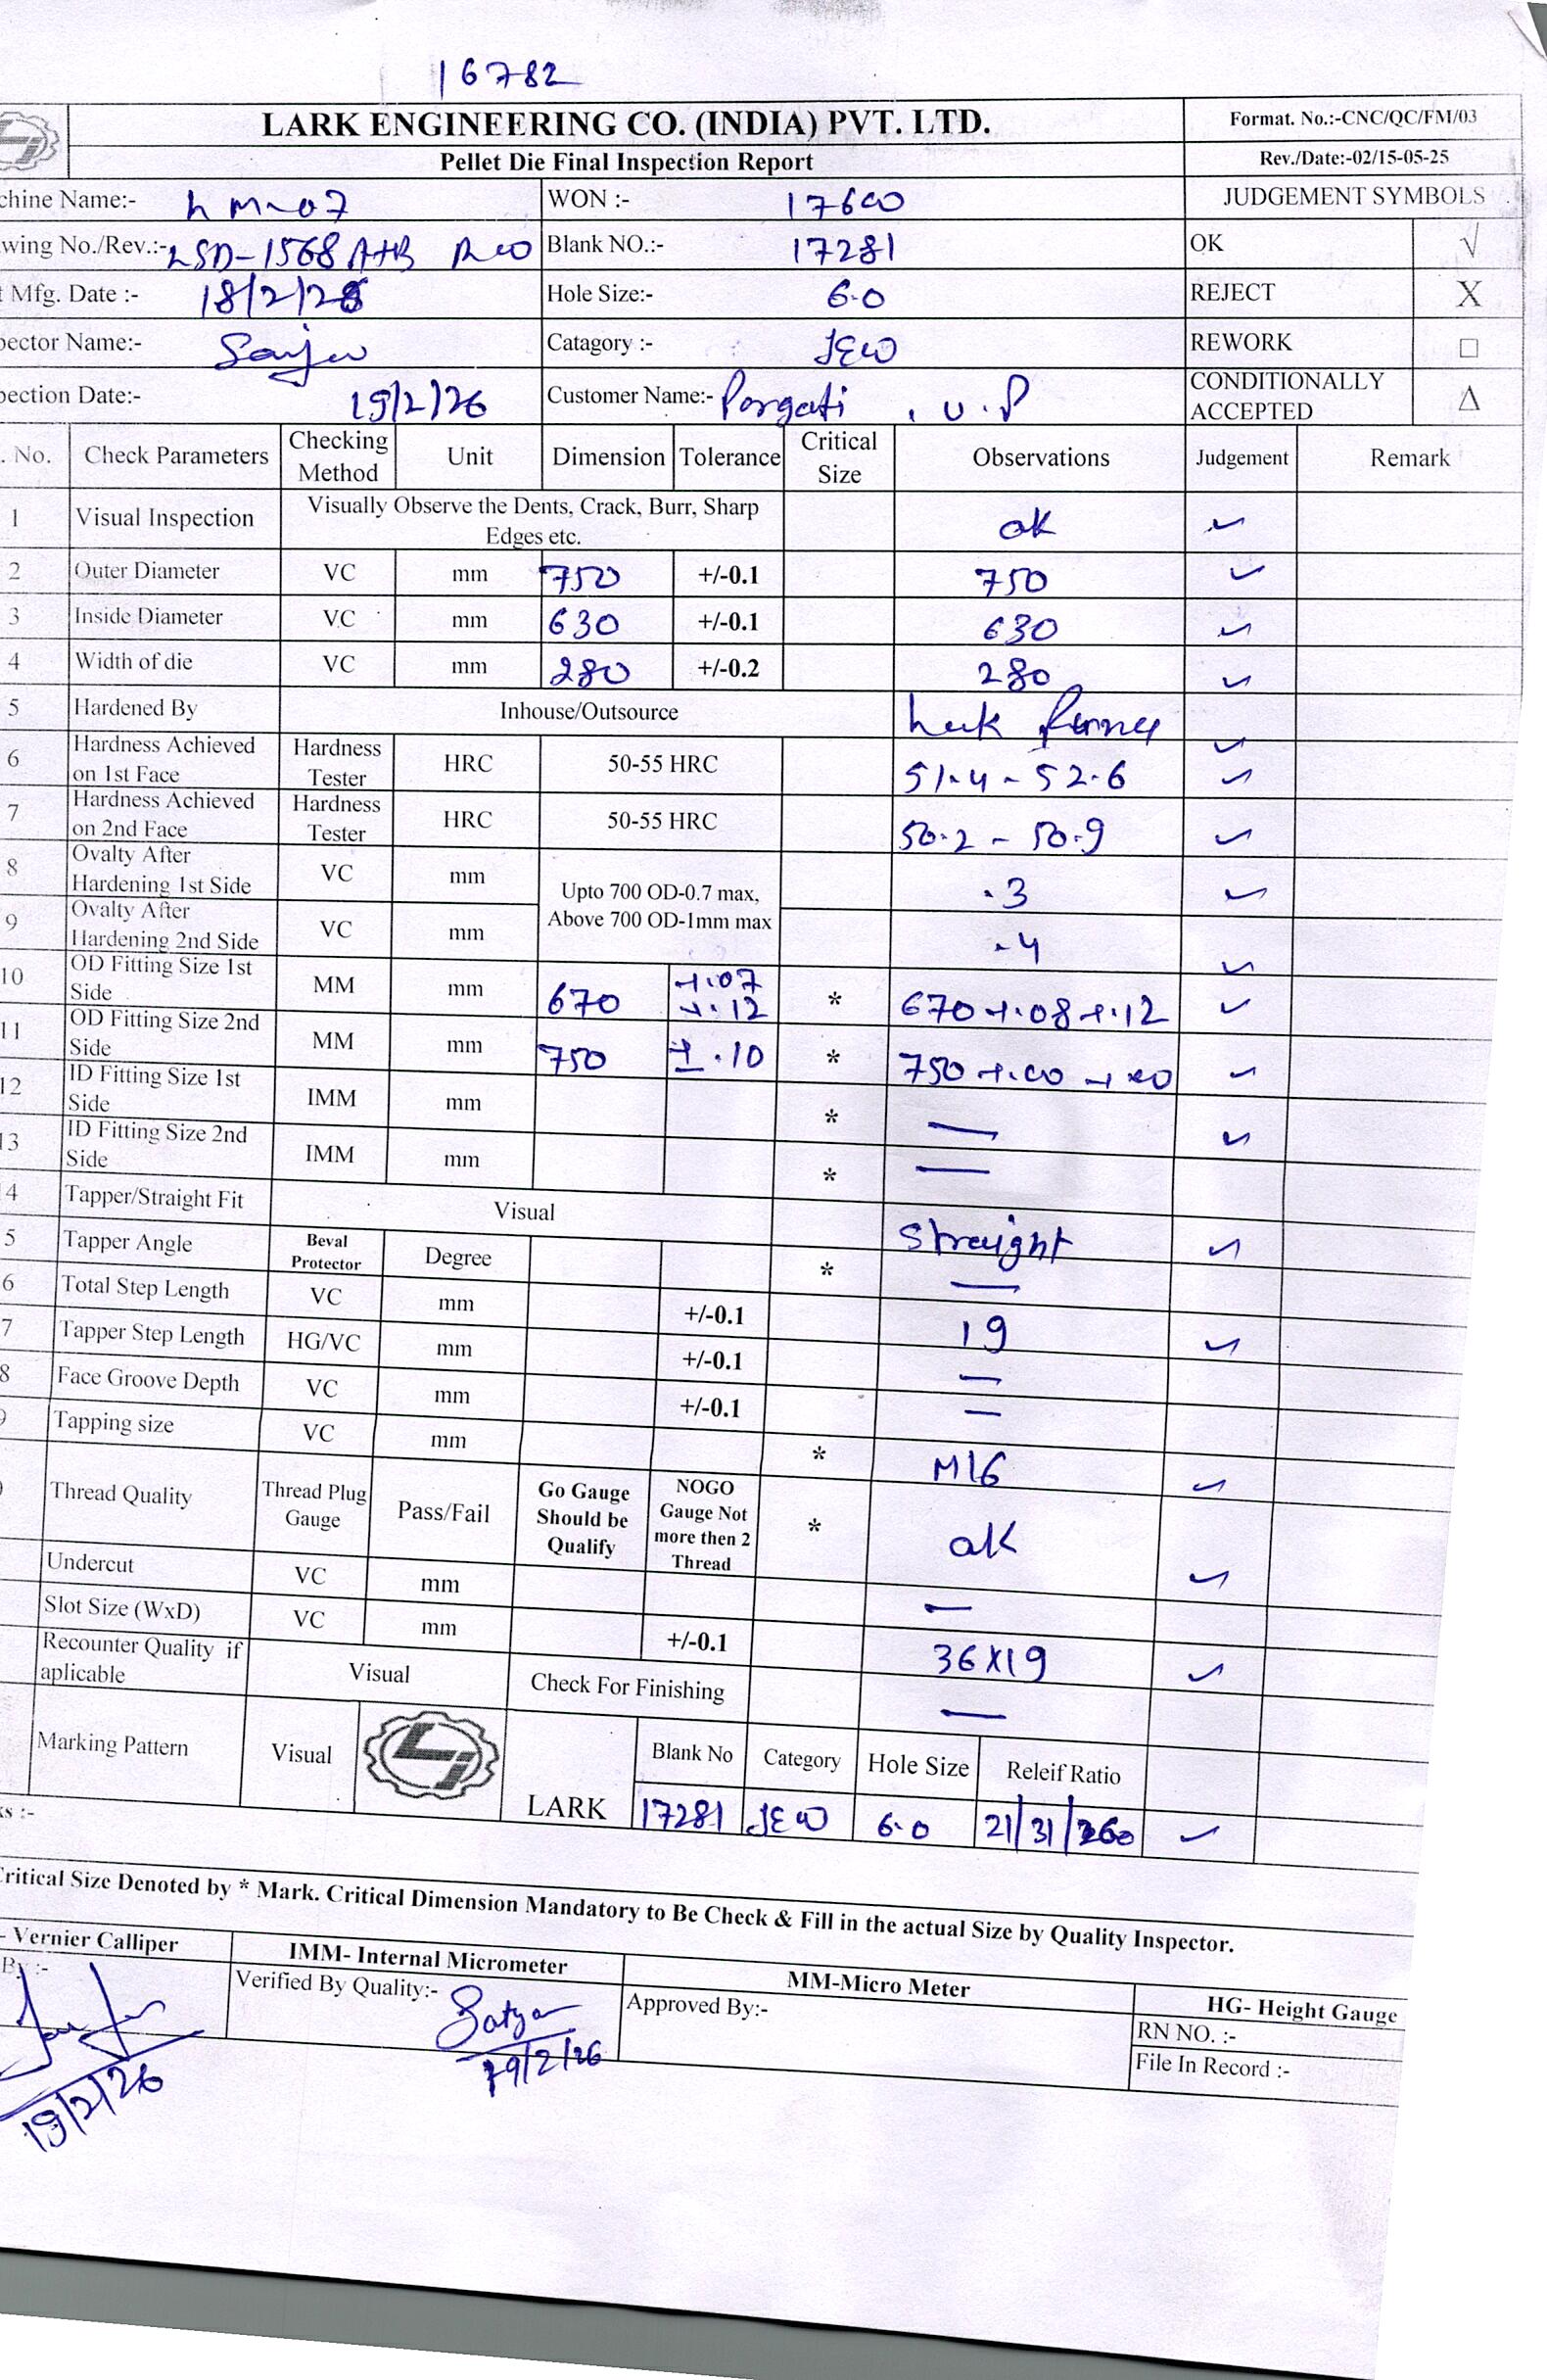 16782
LARK ENGINEERING CO. (INDIA) PVT. LTD. Format. No.:-CNC/QC/FM/03
Pellet Die Final Inspection Report Rev./Date:-02/15-05-25
chine Name:- LM-07 WON :- 17600 JUDGEMENT SYMBOLS
wing No./Rev.:- LSD-1568 A+B R00 Blank NO.:- 17281 OK √
Mfg. Date :- 18/2/26 Hole Size:- 6.0 REJECT X
pector Name:- Catagory :- JEW REWORK □
pection Date:- 19/2/26 Customer Name:- Porgati . U.P CONDITIONALLY ACCEPTED Δ
. No. Check Parameters Checking Method Unit Dimension Tolerance Critical Size Observations Judgement Remark
1 Visual Inspection Visually Observe the Dents, Crack, Burr, Sharp Edges etc. ok ✓
2 Outer Diameter VC mm 750 +/-0.1 750 ✓
3 Inside Diameter VC mm 630 +/-0.1 630 ✓
4 Width of die VC mm 280 +/-0.2 280 ✓
5 Hardened By Inhouse/Outsource ✓
6 Hardness Achieved on 1st Face Hardness Tester HRC 50-55 HRC 51.4 - 52.6 ✓
7 Hardness Achieved on 2nd Face Hardness Tester HRC 50-55 HRC 50.2 - 50.9 ✓
8 Ovalty After Hardening 1st Side VC mm Upto 700 OD-0.7 max, Above 700 OD-1mm max .3 ✓
9 Ovalty After Hardening 2nd Side VC mm .4 ✓
10 OD Fitting Size 1st Side MM mm 670 +.07 +.12 * 670 +.08 +.12 ✓
11 OD Fitting Size 2nd Side MM mm 750 ± .10 * 750 +.00 ✓
12 ID Fitting Size 1st Side IMM mm * — ✓
13 ID Fitting Size 2nd Side IMM mm * —
4 Tapper/Straight Fit Visual Straight ✓
5 Tapper Angle Beval Protector Degree * —
6 Total Step Length VC mm +/-0.1 19 ✓
7 Tapper Step Length HG/VC mm +/-0.1 —
8 Face Groove Depth VC mm +/-0.1 —
9 Tapping size VC mm * M16 ✓
Thread Quality Thread Plug Gauge Pass/Fail Go Gauge Should be Qualify NOGO Gauge Not more then 2 Thread * ok ✓
Undercut VC mm —
Slot Size (WxD) VC mm +/-0.1 36X19 ✓
Recounter Quality if aplicable Visual Check For Finishing —
Marking Pattern Visual LARK Blank No Category Hole Size Releif Ratio
17281 JEW 6.0 21/31/260 ✓
ks :-
Critical Size Denoted by * Mark. Critical Dimension Mandatory to Be Check & Fill in the actual Size by Quality Inspector.
- Vernier Calliper IMM- Internal Micrometer MM-Micro Meter HG- Height Gauge
By :- Verified By Quality:- Satya Approved By:- RN NO. :-
19/2/26 File In Record :-
19/2/26